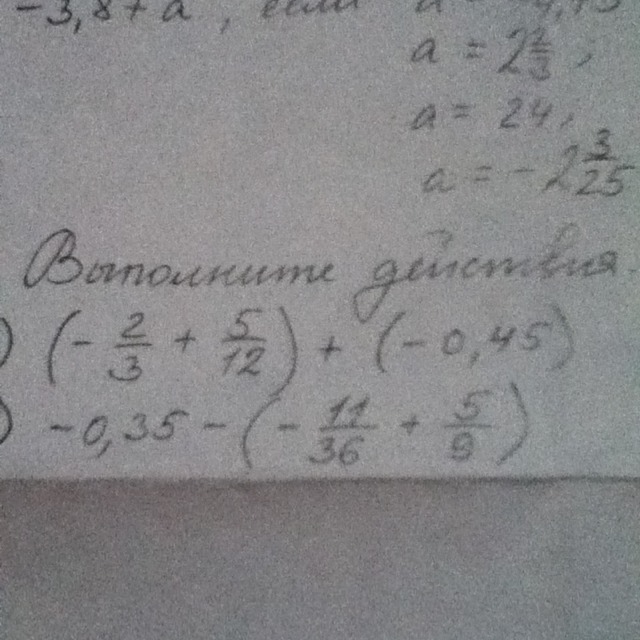 -3,8 + a, если
a = 2 2/3;
a = 24,
a = -2 3/25
Выполните действия
) (- 2/3 + 5/12) + (-0,45)
) -0,35 - (- 11/36 + 5/9)